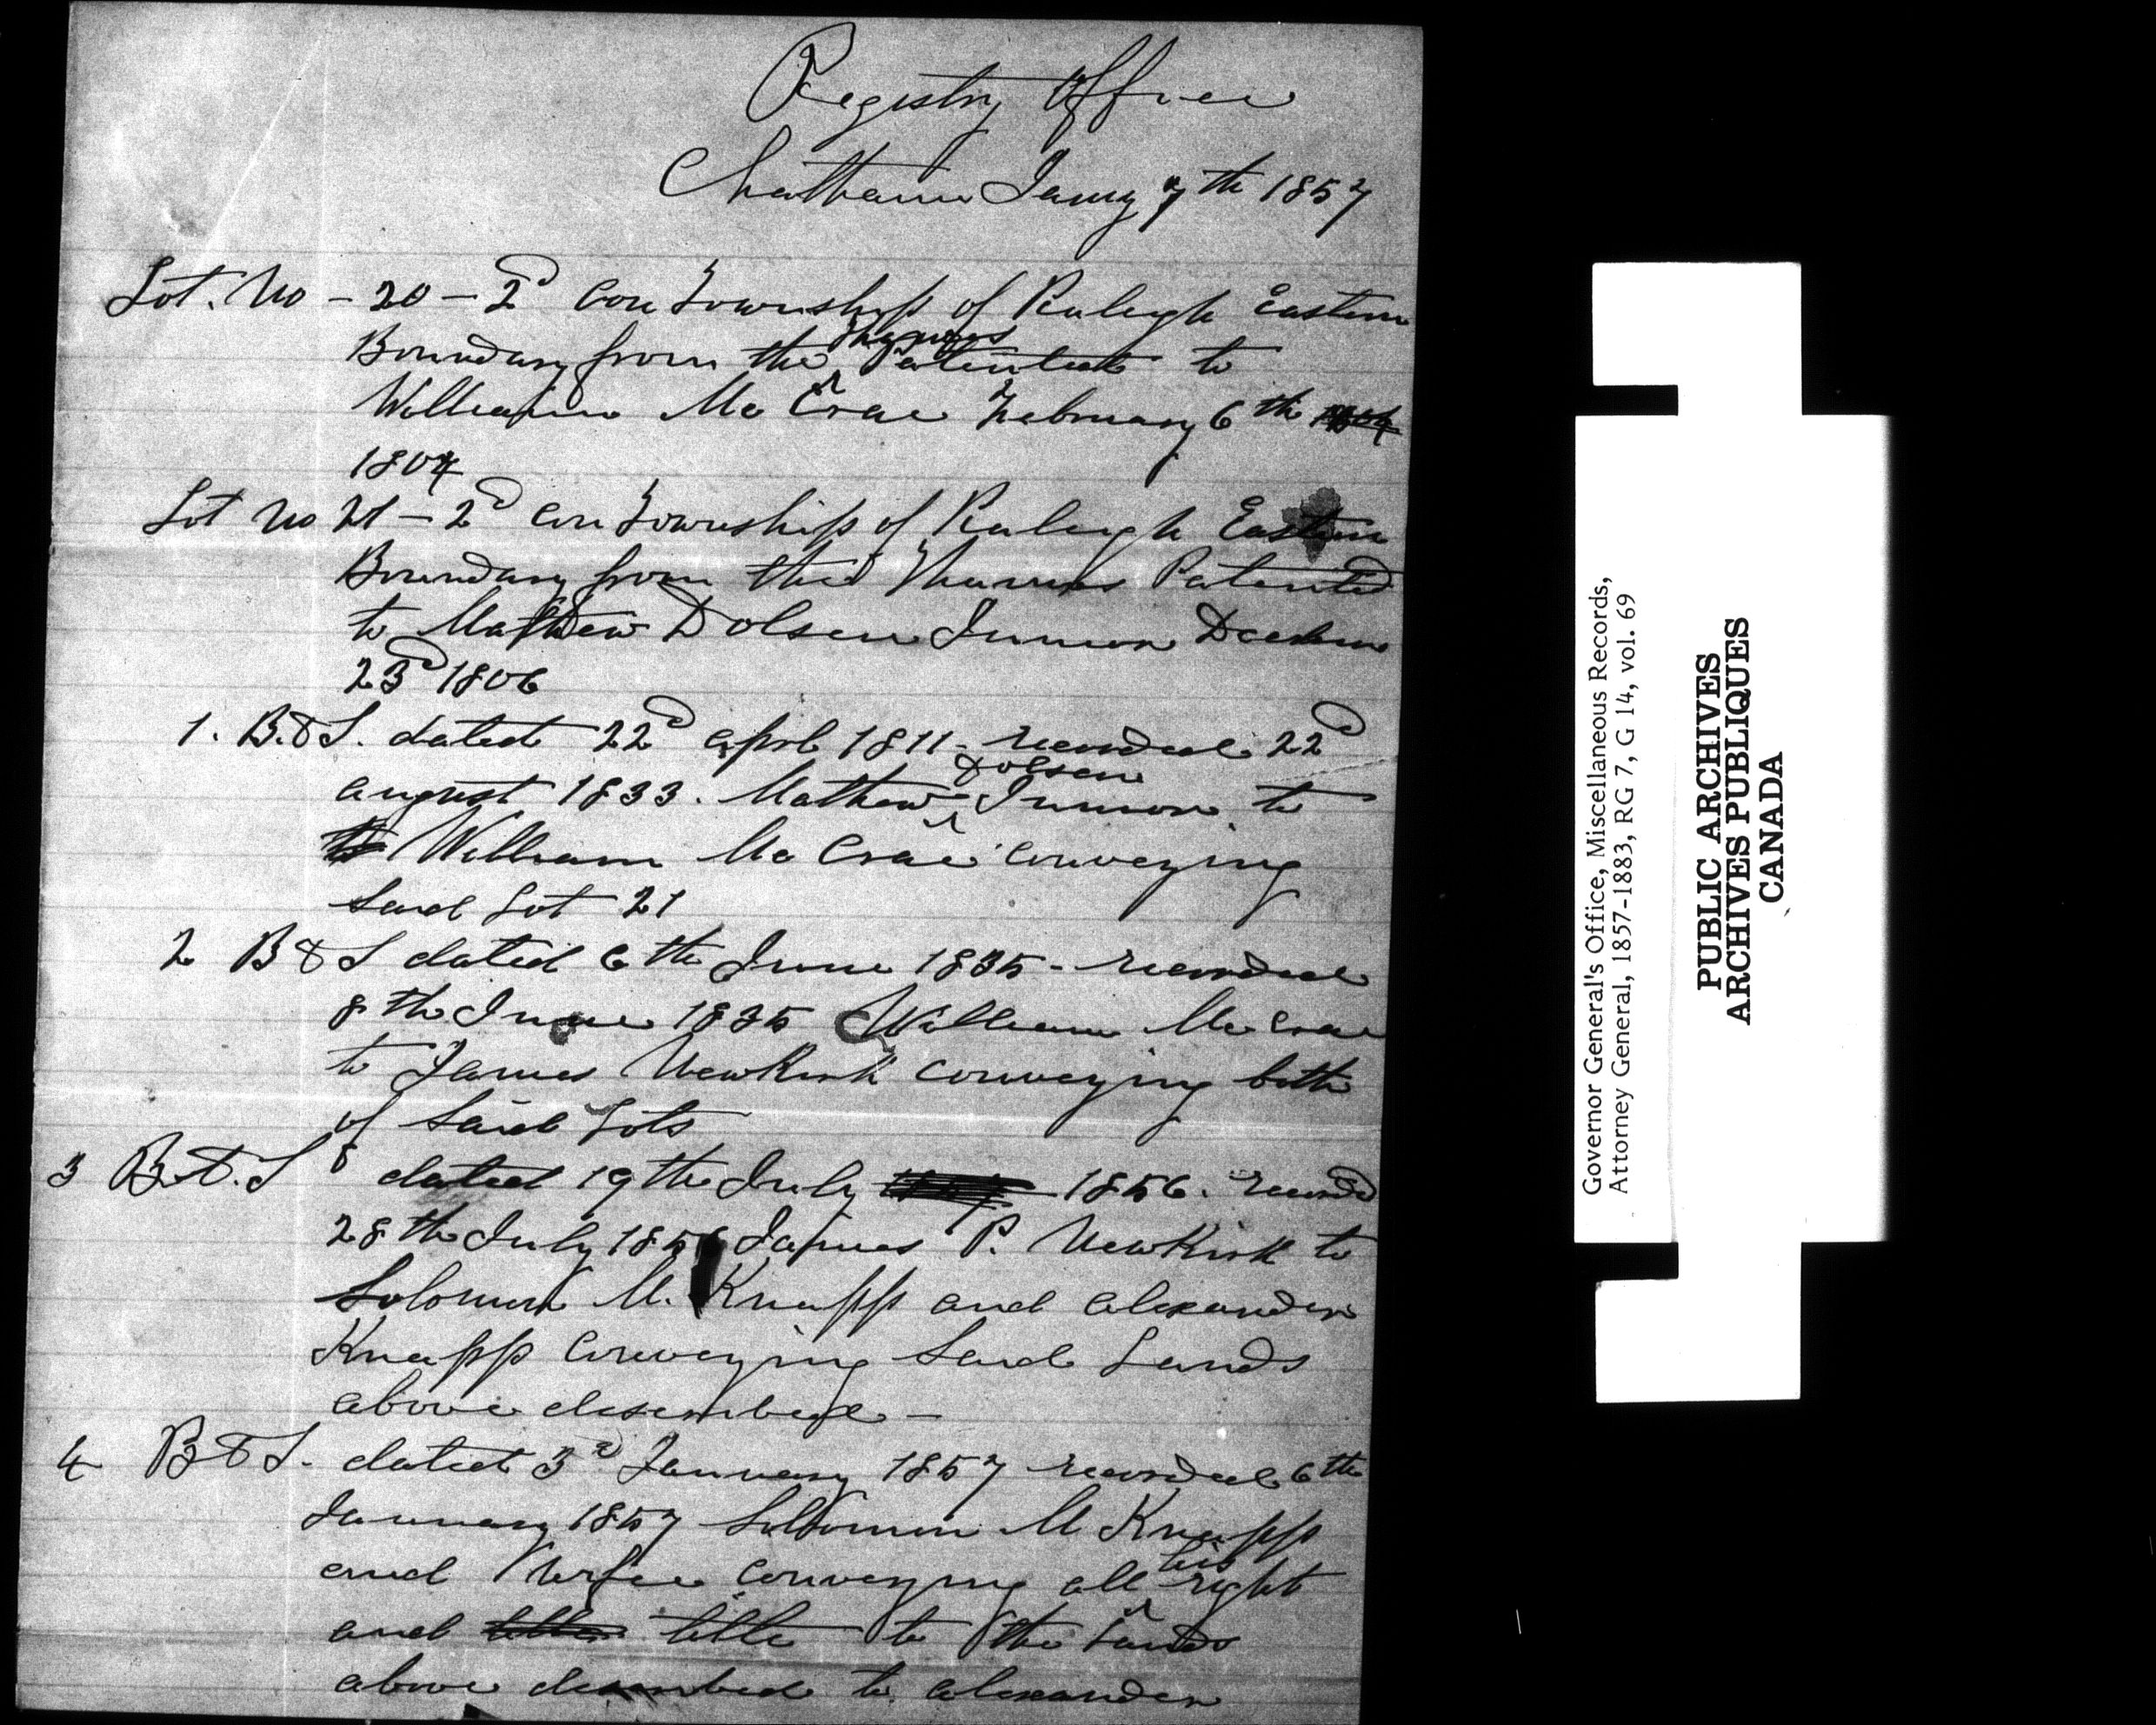 Registry Office
Chatham Jany 7th 1857
Lot. No - 20 - 2d Con Township of Raleigh Eastern
Boundary from the Thames Patented to
William McCrae February 6th
1804
Lot No 21 - 2d Con Township of Raleigh Eastern
Boundary from the Thames Patented
to Mathew Dolsen Junior
23d 1806
1. B&S. dated 22d april 1811 - recorded 22d
august 1833. Mathew Dolsen Junior to
to William McCrae conveying
said Lot 21
2 B&S dated 6th June 1835 - recorded
8th June 1835 William McCrae
to James Newkirk conveying both
of said Lots
3 B.&.S dated 19th July 1856. record
28th July 1856 James P. Newkirk to
Solomon M. Knapp and alexander
Knapp conveying said Lands
above described -
4 B&S. dated 3d January 1857 recorded 6th
January 1857 Solomon M Knapp
and Wife conveying all his right
and title to the Lands
above described to alexander
Governor General's Office, Miscellaneous Records,
Attorney General, 1857-1883, RG 7, G 14, vol. 69
PUBLIC ARCHIVES
ARCHIVES PUBLIQUES
CANADA